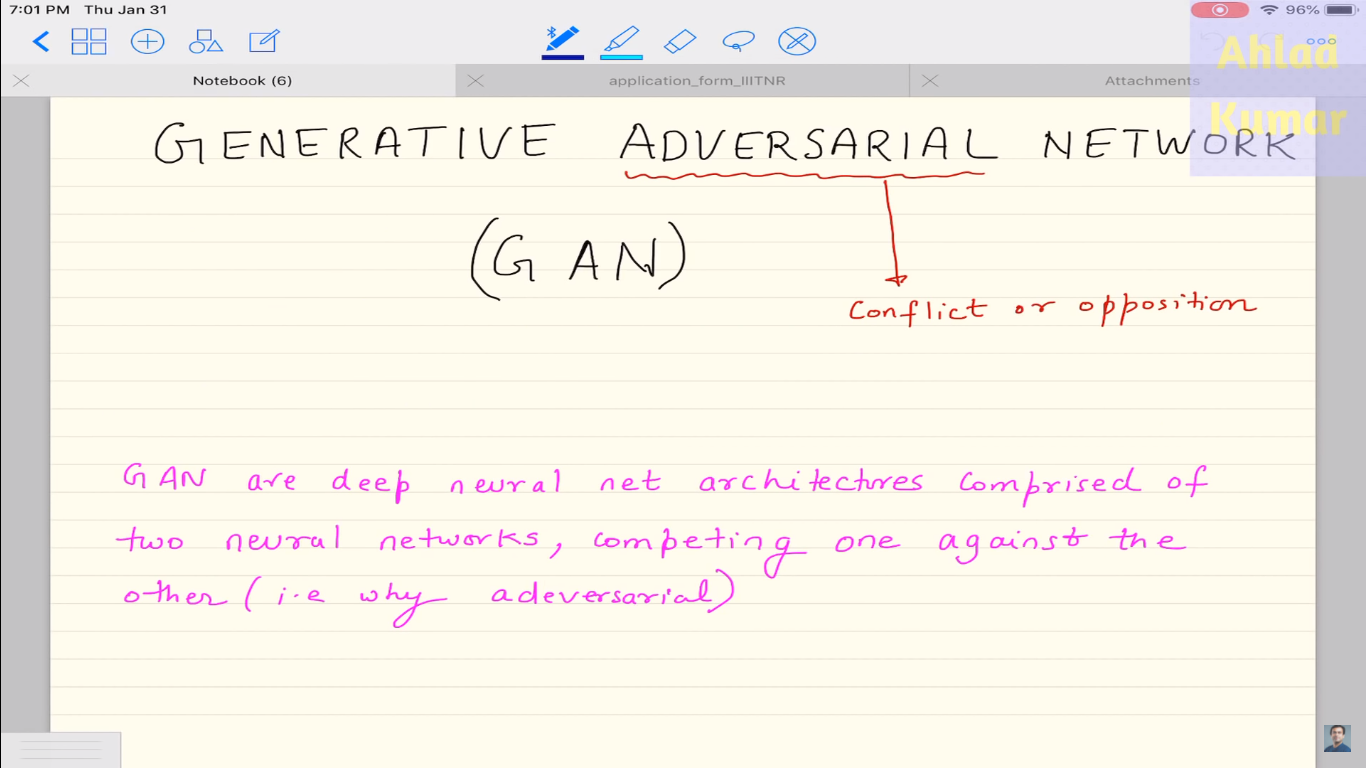 7:01 PM Thu Jan 31
96%
Ahlad
Kumar
Notebook (6)
application_form_IIITNR
Attachments
GENERATIVE ADVERSARIAL NETWORK
(GAN)
Conflict or opposition
GAN are deep neural net architectures comprised of
two neural networks, competing one against the
other (i.e why adeversarial)